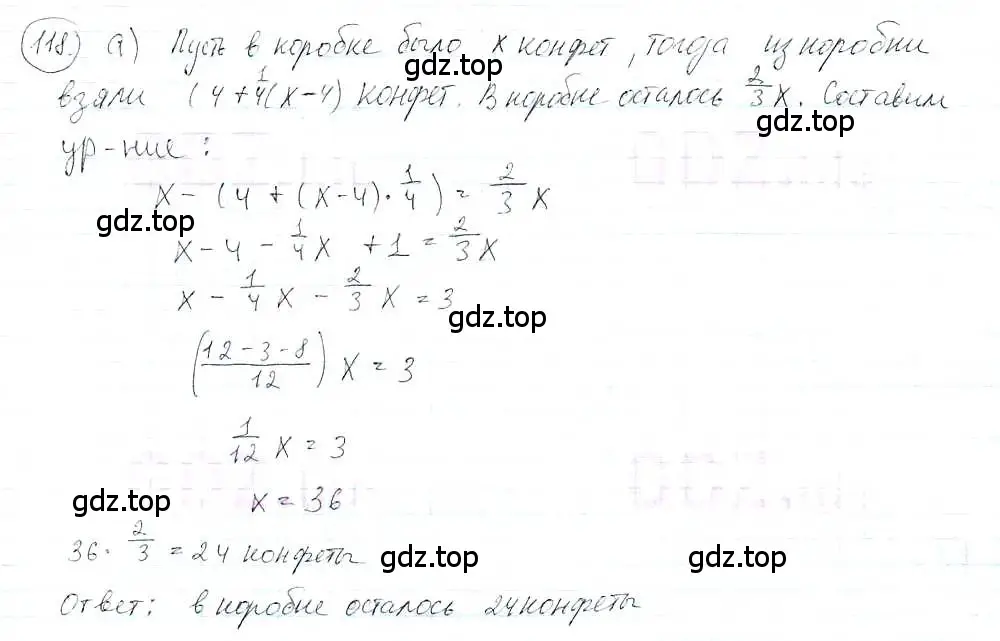 118. а) Пусть в коробке было x конфет, тогда из коробки
взяли (4 + 1/4(x-4) конфет. В коробке осталось 2/3 x. Составим
ур-ние:
x - (4 + (x-4) · 1/4) = 2/3 x
x - 4 - 1/4 x + 1 = 2/3 x
x - 1/4 x - 2/3 x = 3
((12-3-8)/12) x = 3
1/12 x = 3
x = 36
36 · 2/3 = 24 конфеты
Ответ: в коробке осталось 24 конфеты
gdz.top
gdz.top
gdz.top
gdz.top
gdz.top
gdz.top
gdz.top
gdz.top